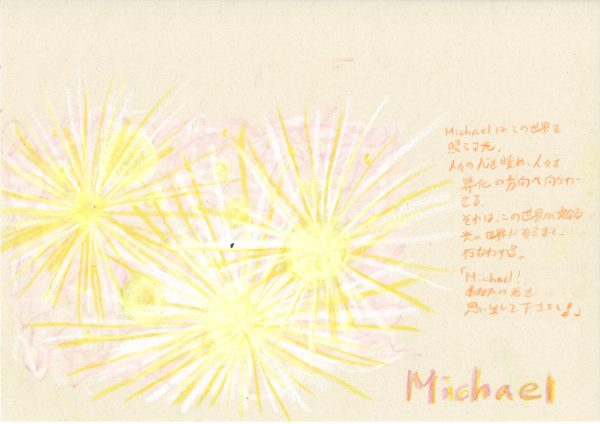 Michaelはこの世界を
照らす光。
人々の心を暖め、人々を
昇化の方向へ向かわ
せる。
それは、この世界が
光の世界になるまで、
行なわれる。
「Michael!
あなたの光を
思い出して下さい!」
Michael